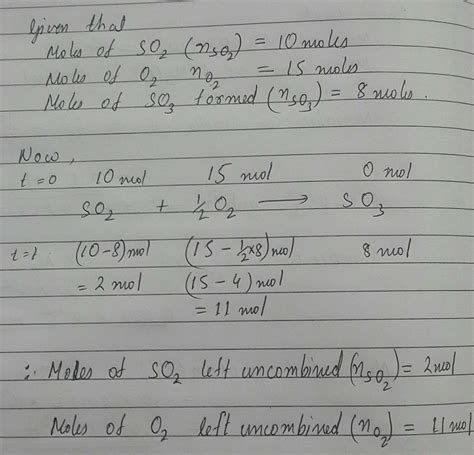 Given that
Moles of SO₂ (nSO₂) = 10 moles
Moles of O₂ nO₂ = 15 moles
Moles of SO₃ formed (nSO₃) = 8 moles.
Now,
t=0 10 mol 15 mol 0 mol
SO₂ + ½O₂ → SO₃
t=t (10-8) mol (15 - ½×8) mol 8 mol
= 2 mol (15 - 4) mol
= 11 mol
∴ Moles of SO₂ left uncombined (nSO₂) = 2 mol
Moles of O₂ left uncombined (nO₂) = 11 mol